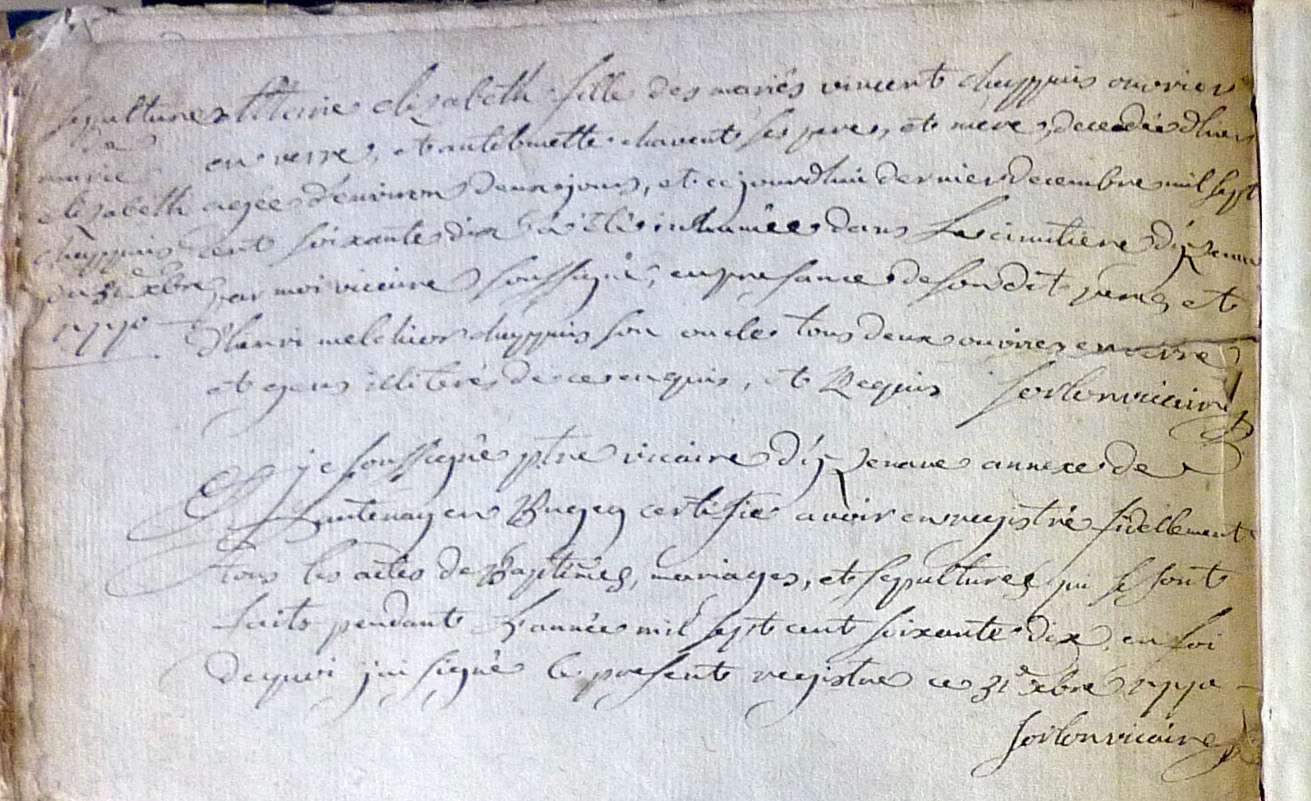 sepulture
de
marie
elizabeth
chuppuis
du 31e xbre
1770
Marie elizabeth fille des mariés vincent chuppuis ouvrier
en verre, et antelmette chavent ses pere, et mere, decedée d'hier
agée d'environ deux jours, et ce jourdhui dernier decembre mil sept
cent soixante dix a été inhumée dans le cimitiere d'izenave
par moi vicaire soussigné, en presance de son dit pere, et
d'henri melchior chuppuis son oncle tous deux ouvriers en verre
et gens illiterés de ce enquis, et Requis sorlon vicaire
je soussigné ptre vicaire d'izenave annexe de
Lantenay en Bugey certifie avoir enregistré fidellement
tous les actes de Baptêmes, mariages, et sepultures qui se sont
faits pendant L'année mil sept cent soixante dix, en foi
de quoi j'ai signé le present registre ce 31e xbre 1770
sorlon vicaire